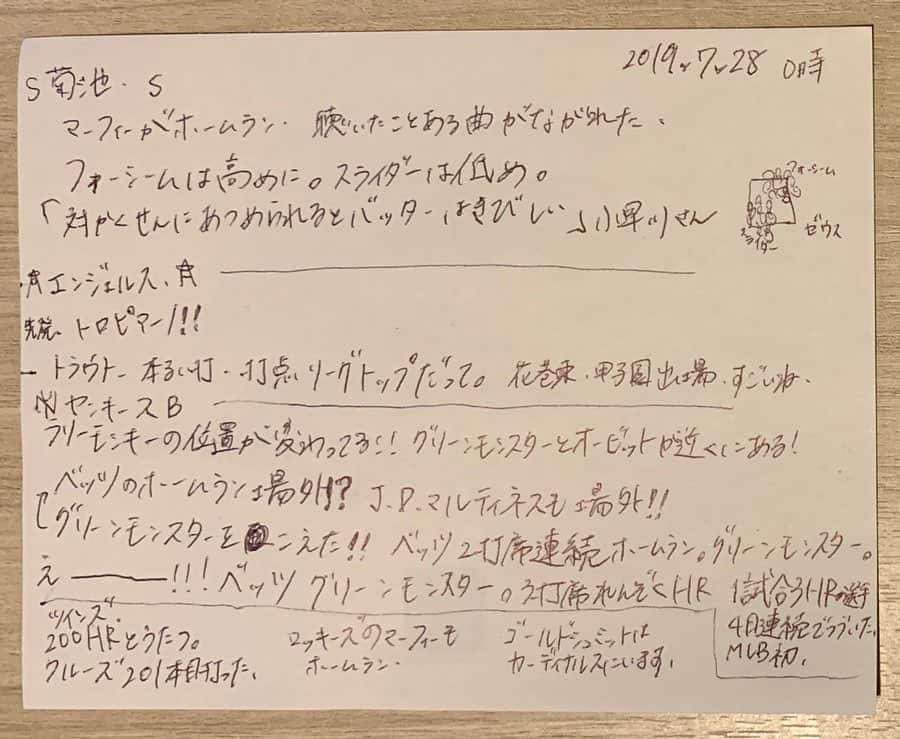 2019.7.28 0時
S菊池.S
マーフィーがホームラン. 聴いたことある曲がながれた.
フォーシームは高めに。スライダーは低め。
「対かくせんにあつめられるとバッターはきびしい」小早川さん
フォーシーム
スライダー
ゼウス
エンジェルス.
先発. トロピアーノ!!
トラウト 本るい打.打点リーグトップだって。花巻東.甲子園出場.すごいね.
NYヤンキースB
ラリーモンキーの位置が変わってる!! グリーンモンスターとオービットが近くにある!
ベッツのホームラン場外!? J.D.マルティネスも場外!!
グリーンモンスターをこえた!! ベッツ2打席連続ホームラン。グリーンモンスター。
え――!!! ベッツ グリーンモンスター.3打席れんぞくHR
ツインズ.
200HRとうたつ。
クルーズ201本目打った.
ロッキーズのマーフィーも
ホームラン.
ゴールドシュミットは
カーディナルスにいます.
1試合3HRの選手
4日連続でつづいた.
MLB初.